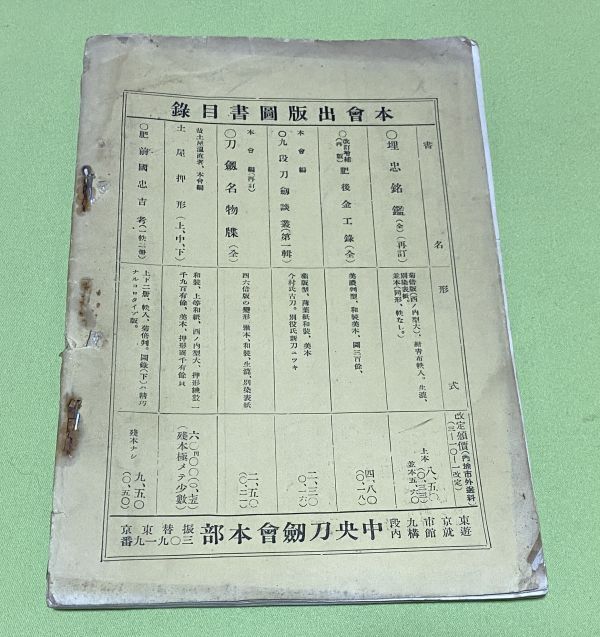 本會出版圖書目錄
書名
形式
改定頒價(內地市外送料)
(三—一〇—一改定)
〇埋忠銘鑑(全)(再訂)
菊倍版(西ノ內型大)、新書布帙入。生漉、
別染表紙。
並本(同形、帙なし。)
上本 八、五〇
(〇、三三)
並本 五、六〇
〇改訂增補(再版)肥後金工錄(全)
美濃判型、和裝美本、圖三百餘、
四、八〇
(〇、一八)
本會編
〇九段刀劔談叢(第一輯)
菊版型、薄葉紙和裝、美本
今村氏古刀。別役氏新刀ニツキ
二、二〇
(〇、一六)
本會編(再訂)
〇刀劔名物牒(全)
四六倍版の變形、雅本、和裝、生漉、別染表紙
二、五〇
(〇、二一)
故土屋溫直著、本會編
土屋押形(上、中、下)
和裝、上等和紙、西ノ內型大、押形總數一
千九百有餘、美本、押形面千有餘頁
(殘本極メテ少數)
〇肥前國忠吉考(一帙二冊)
上下二册、帙入、菊倍判。圖錄(下)ハ精巧
ナルコロタイプ版。
殘本ナシ
九、五〇
(〇、五〇)
東京市九段
遊就館構內
中央刀劔會本部
振替東京
三〇九一九番